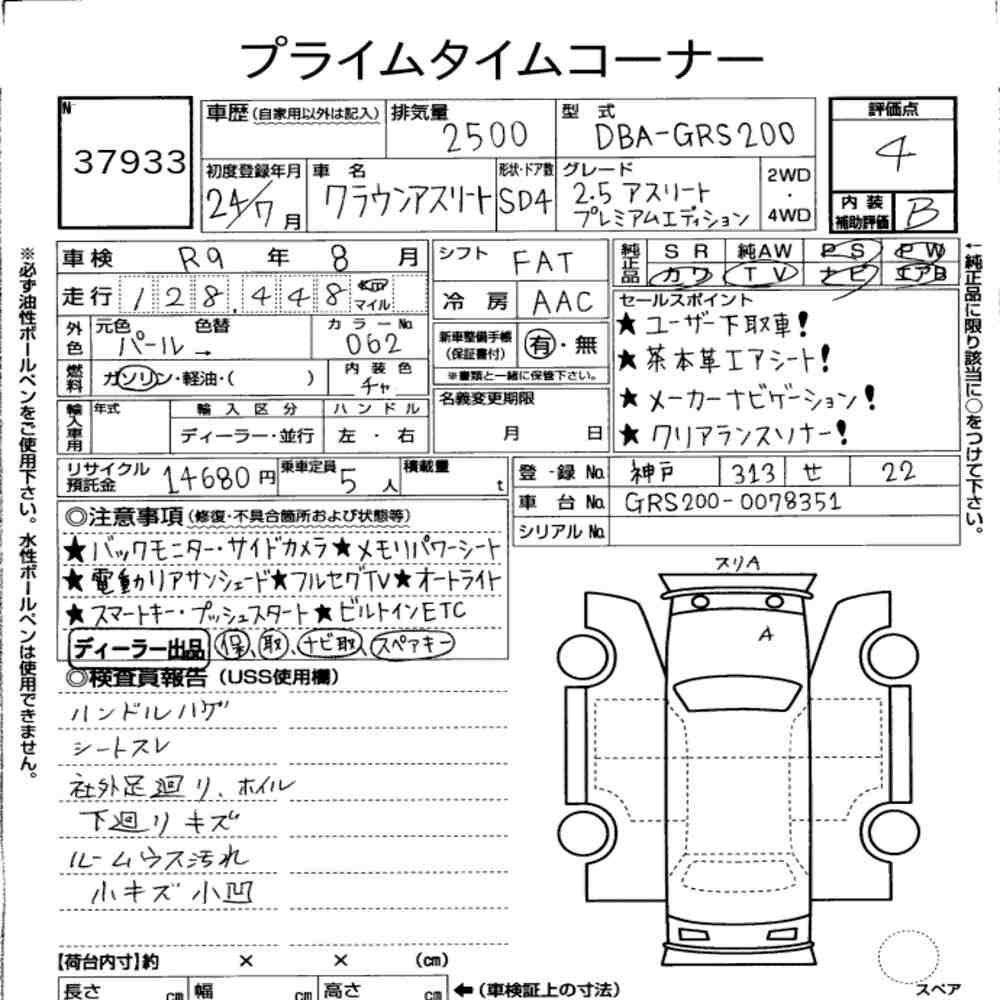 プライムタイムコーナー
N
37933
車歴(自家用以外は記入)
排気量
2500
型 式
DBA-GRS200
評価点
4
初度登録年月
24/7月
車 名
クラウンアスリート
形状・ドア数
SD4
グレード
2.5 アスリート
プレミアムエディション
2WD
・
4WD
内 装
補助評価
B
車検 R9 年 8 月
シフト FAT
純正品
SR 純AW PS PW
カワ TV ナビ エアB
走行 128,448 km マイル
冷 房 AAC
セールスポイント
★ユーザー下取車!
★茶本革エアシート!
★メーカーナビゲーション!
★クリアランスソナー!
外色 元色 色替
パール →
カラーNo.
062
新車整備手帳
(保証書付)
有・無
※書類と一緒に保管下さい。
燃料 ガソリン・軽油・( )
内 装 色
チャ
名義変更期限
月 日
輸入車用 年式
輸 入 区 分
ディーラー・並行
ハ ン ド ル
左 ・ 右
リサイクル預託金 14680円
乗車定員 5人
積載量 t
登 録 No. 神戸 313 せ 22
車 台 No. GRS200-0078351
シリアル No.
◎注意事項(修復・不具合箇所および状態等)
★バックモニター・サイドカメラ★メモリパワーシート
★電動リアサンシェード★フルセグTV★オートライト
★スマートキー・プッシュスタート★ビルトインETC
ディーラー出品 保、取、ナビ取、スペアキー
◎検査員報告(USS使用欄)
ハンドルハゲ
シートスレ
社外足廻り、ホイル
下廻りキズ
ルームウス汚れ
小キズ小凹
スリA
A
【荷台内寸】約 × × (cm)
長さ cm 幅 cm 高さ cm
←(車検証上の寸法)
スペア
※必ず油性ボールペンをご使用下さい。水性ボールペンは使用できません。
←純正品に限り該当に○をつけて下さい。